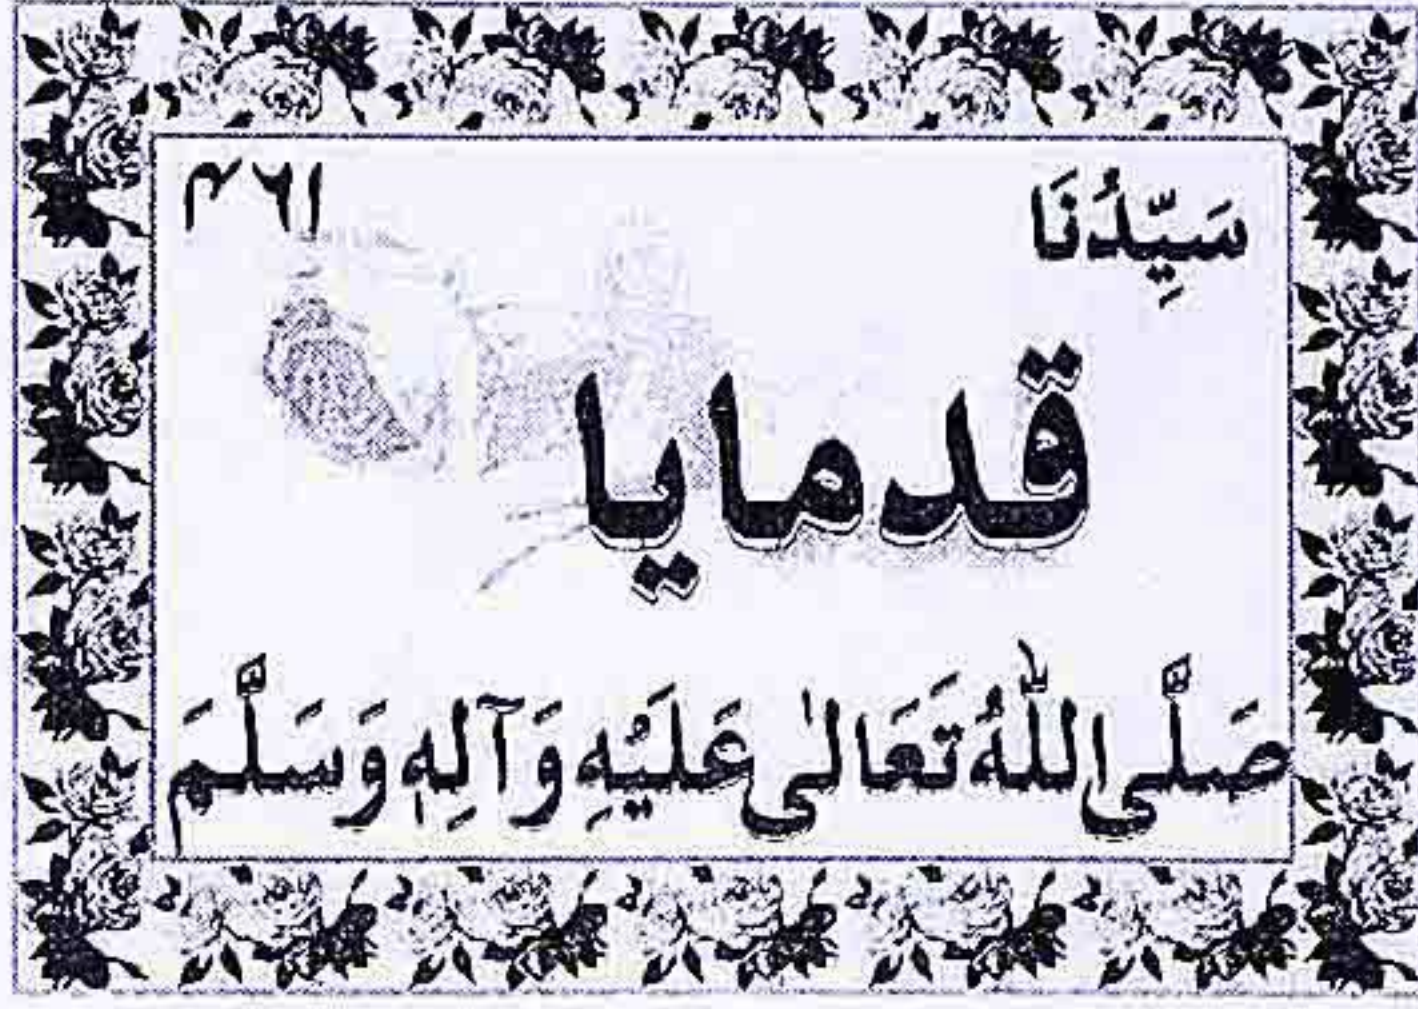 سَيِّدُنَا ۴۶۱
قدمایا
صَلَّى اللّٰهُ تَعَالٰى عَلَيْهِ وَآلِهٖ وَسَلَّمَ